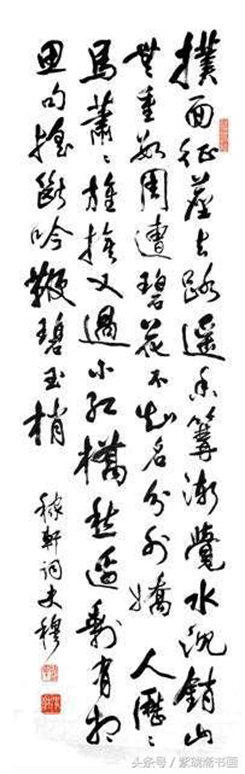 撲面征塵去路遥香篝漸覺水沉銷山
無重數周遭碧花不知名分外嬌人歷〻
馬蕭〻旌旗又過小紅橋愁邊剩有相
思句摇斷吟鞭碧玉梢
稼軒詞史穆
头条号 / 斋书画